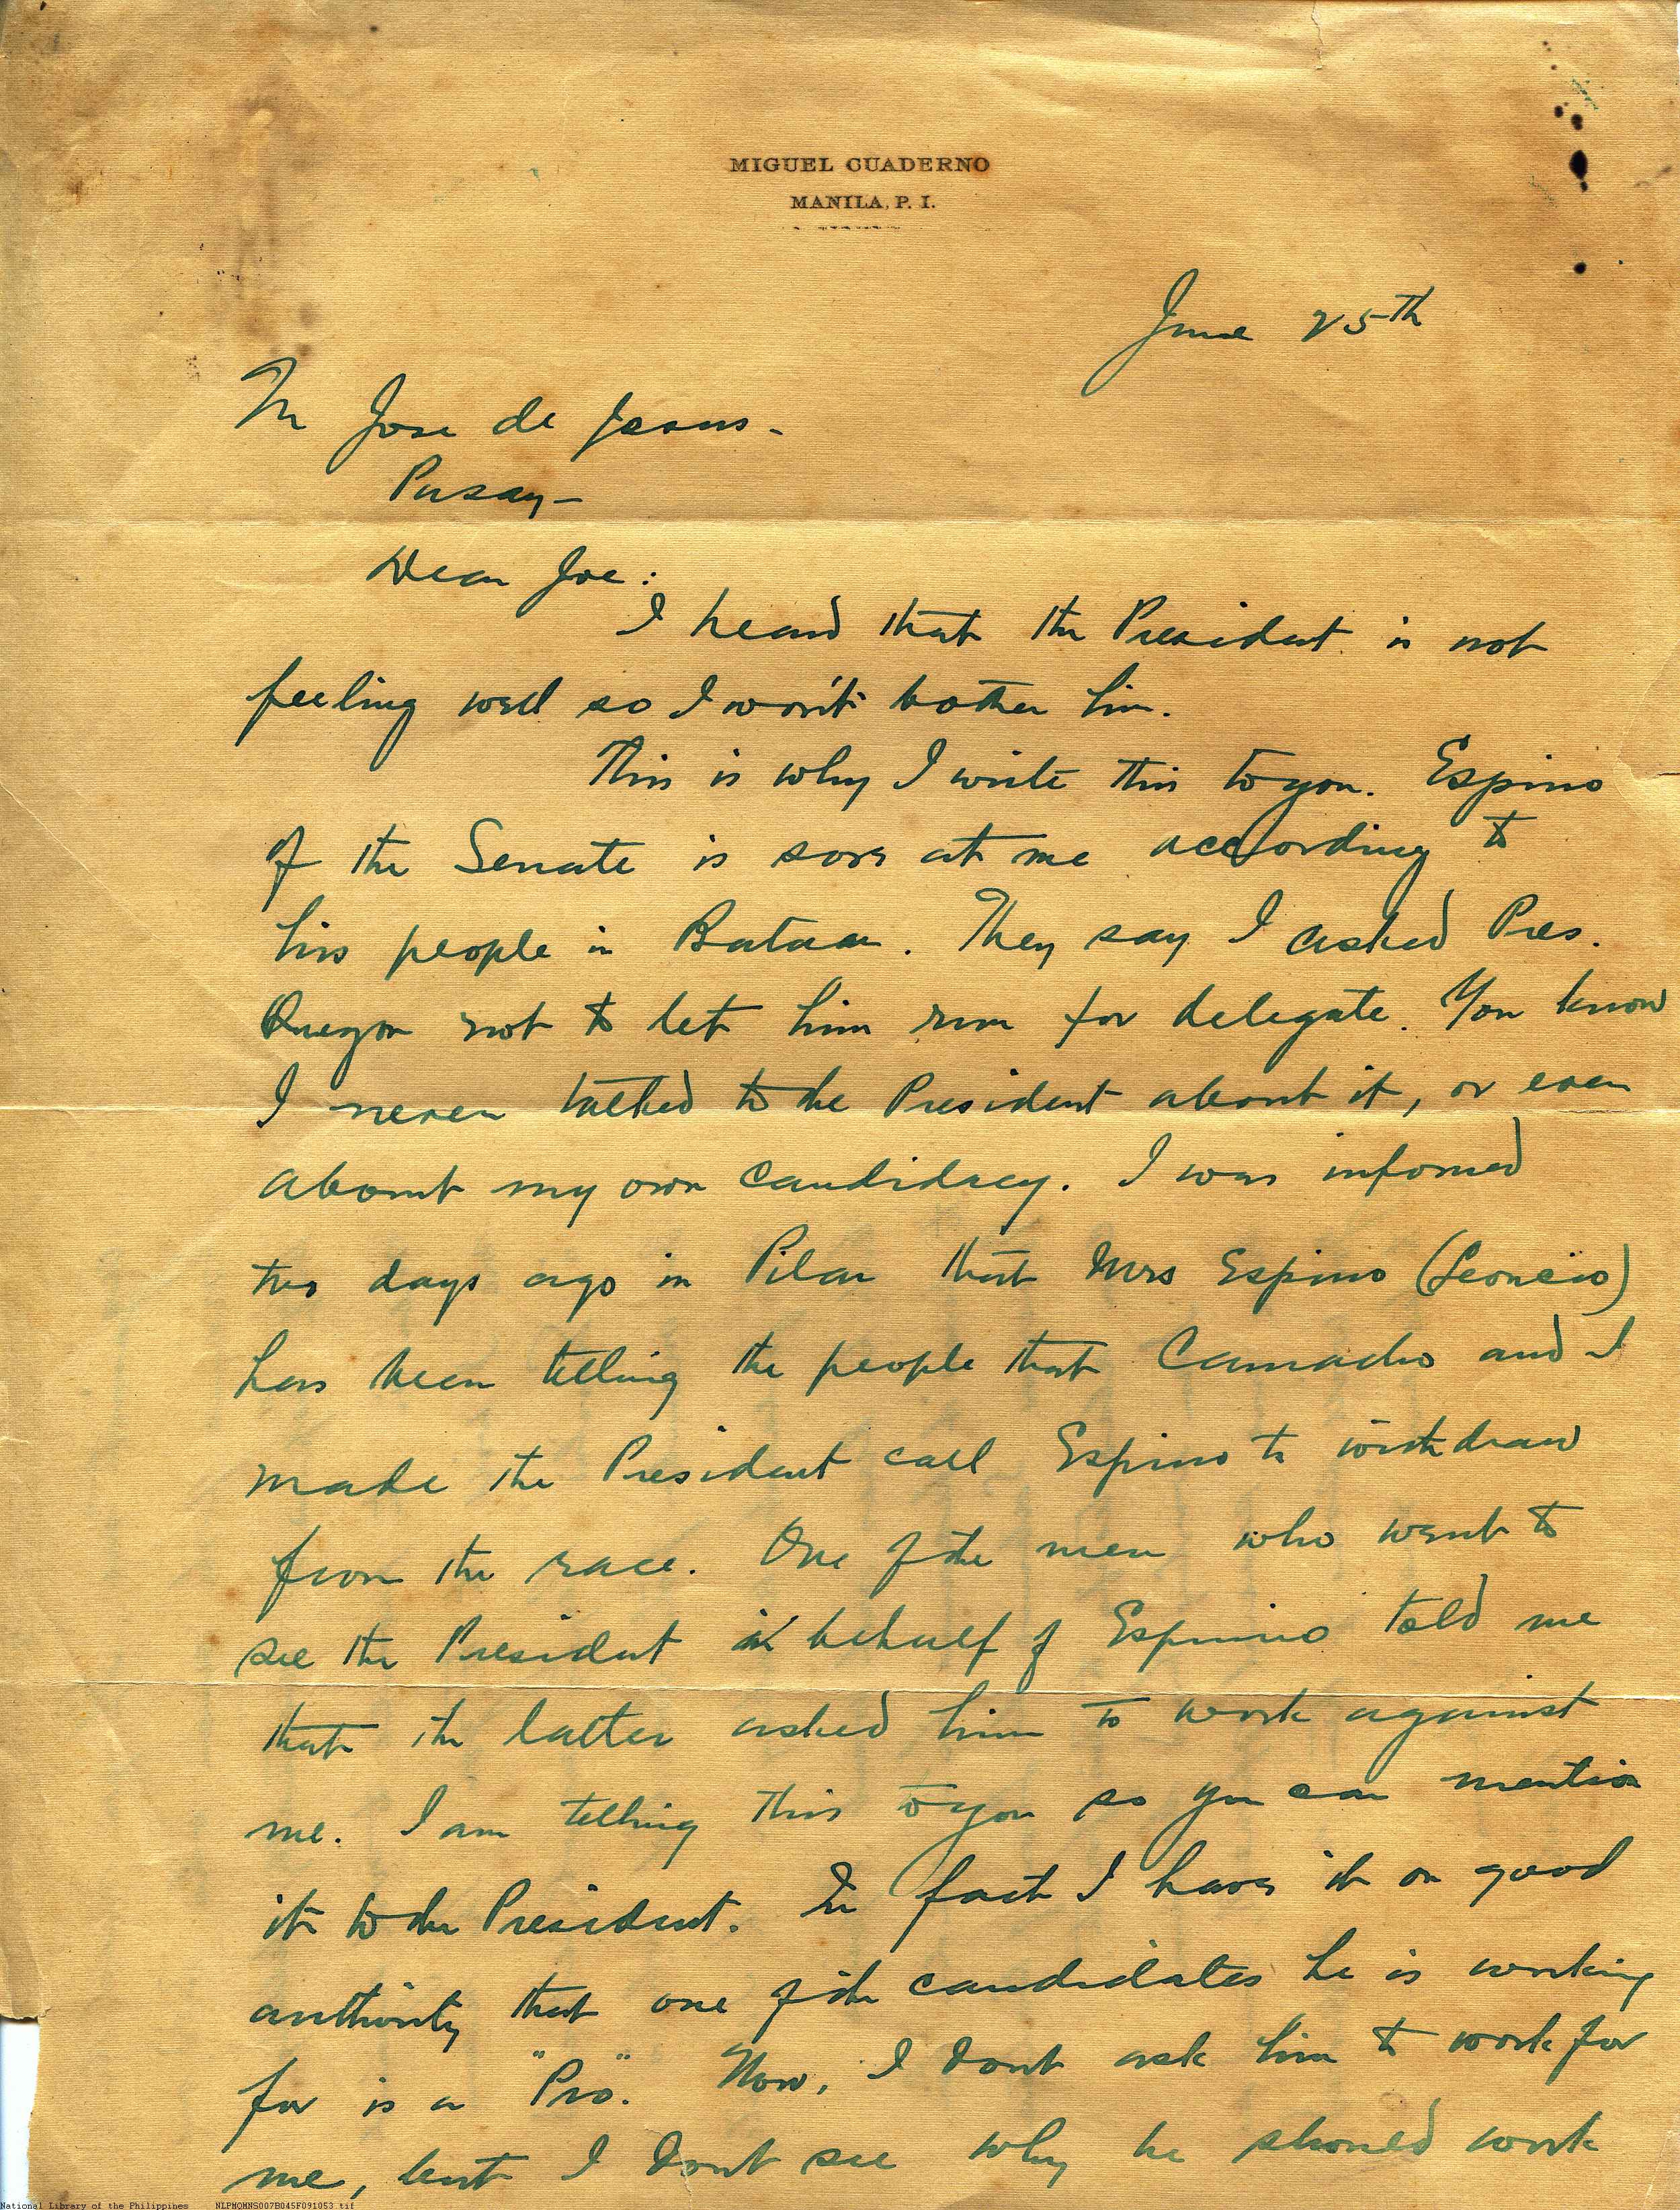 MIGUEL CUADERNO
MANILA, P. I.
June 25th
Mr Jose de Jesus-
Pasay-
Dear Joe:
I heard that the President is not
feeling well so I won't bother him.
This is why I write this to you. Espino
of the Senate is sore at me according to
his people in Bataan. They say I asked Pres.
Quezon not to let him run for delegate. You know
I never talked to the President about it, or even
about my own candidacy. I was informed
two days ago in Pilar that Mrs Espino (Leoncio)
has been telling the people that Camacho and I
made the President call Espino to withdraw
from the race. One of the men who went to
see the President in behalf of Espino told me
that the latter asked him to work against
me. I am telling this to you so you can mention
it to the President. In fact I have it on good
authority that one of the candidates he is working
for is a "Pro". Now, I dont ask him to work for
me, but I dont see why he should work
National Library of the Philippines NLPMQMNS007B045F091053.tif